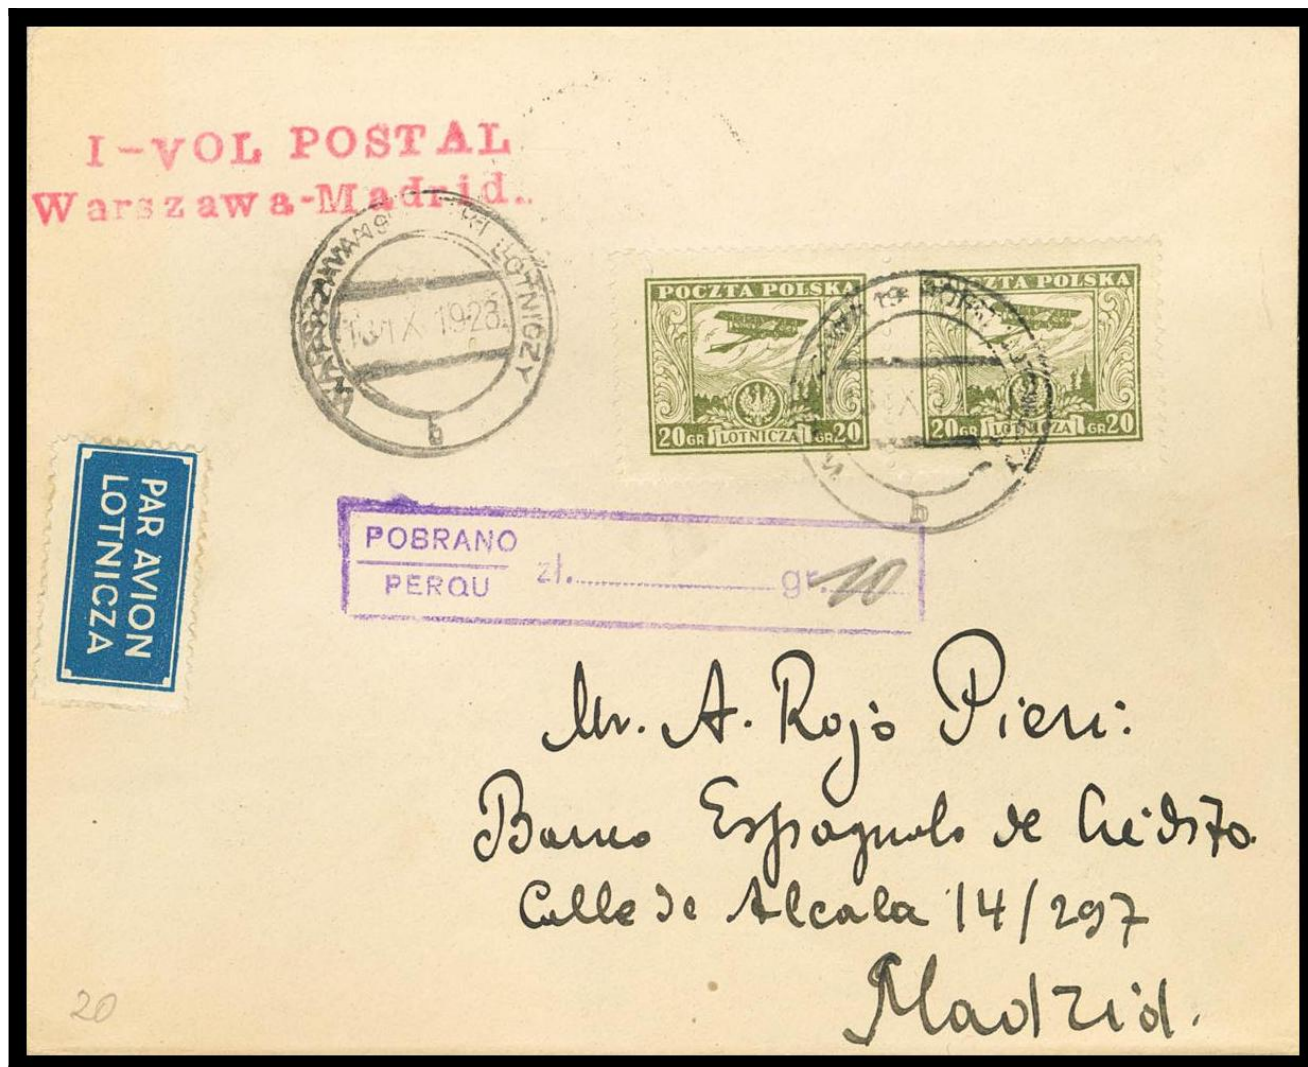 I-VOL POSTAL
Warszawa-Madrid..
WARSZAWA 19 PORT LOTNICZY
1928
b
POCZTA POLSKA
20 GR LOTNICZA GR 20
POCZTA POLSKA
20 GR LOTNICZA GR 20
b
PAR AVION
LOTNICZA
POBRANO
PERQU
zł. gr. 10
Mr. A. Rojo Pieri:
Banco Espagnolo de Crédito.
Calle de Alcala 14/297
Madrid.
20